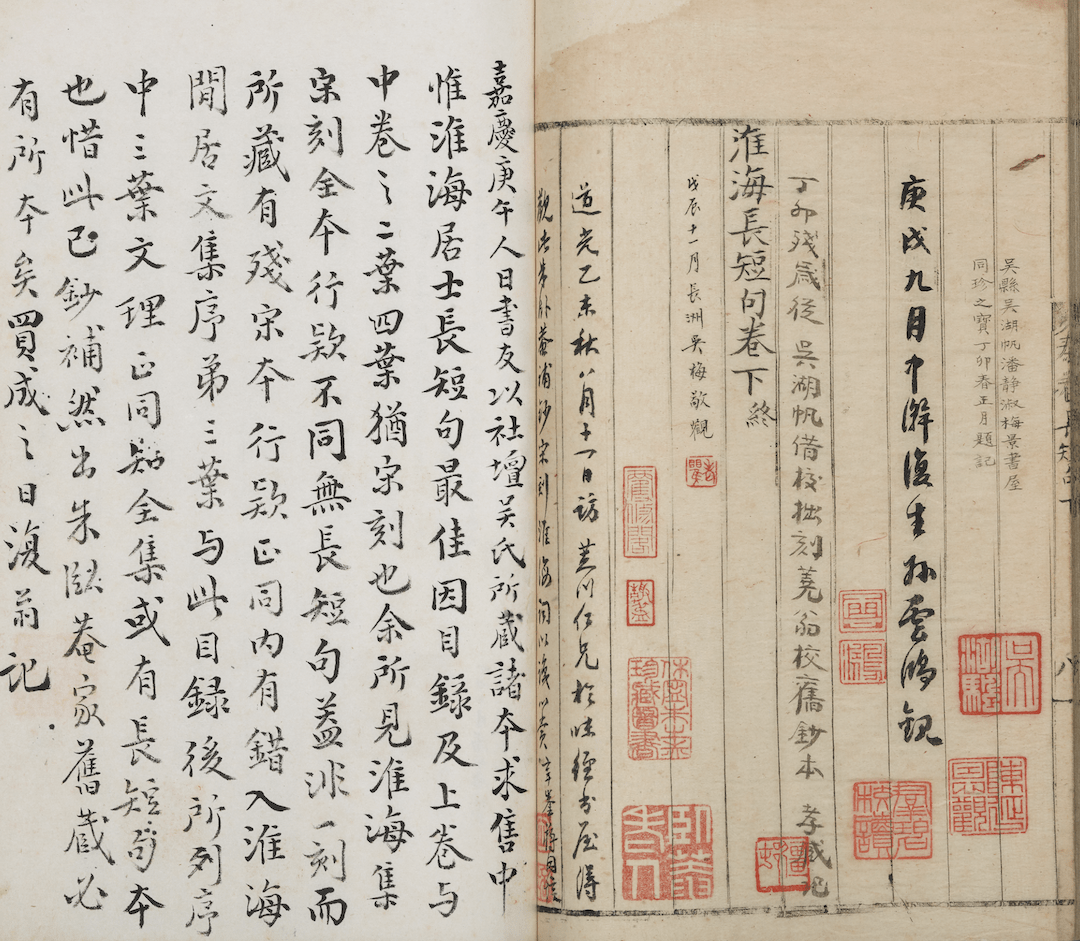 吳縣吳湖帆潘静淑梅景書屋
同珍之寶丁卯春正月題記
庚戌九月中澣後生孙雲鴻觀
丁卯殘歲從吳湖帆借校拙刻蕘翁校舊鈔本 孝臧記
淮海長短句卷下終
戊辰十一月長洲吳梅敬觀
道光乙未秋八月十一日訪芙川仁兄於味經书屋得
嘉慶庚午人日書友以社壇吴氏所藏諸本求售中
惟淮海居士長短句最佳因目録及上卷与
中卷之二葉四葉猶宋刻也余所見淮海集
宋刻全本行欵不同無長短句盖非一刻而
所藏有殘宋本行欵正同内有錯入淮海
閒居文集序弟三葉与此目録後所列序
中三葉文理正同知全集或有長短句本
也惜此已鈔補然出朱臥菴家舊藏必
有所本矣買成之日復翁記